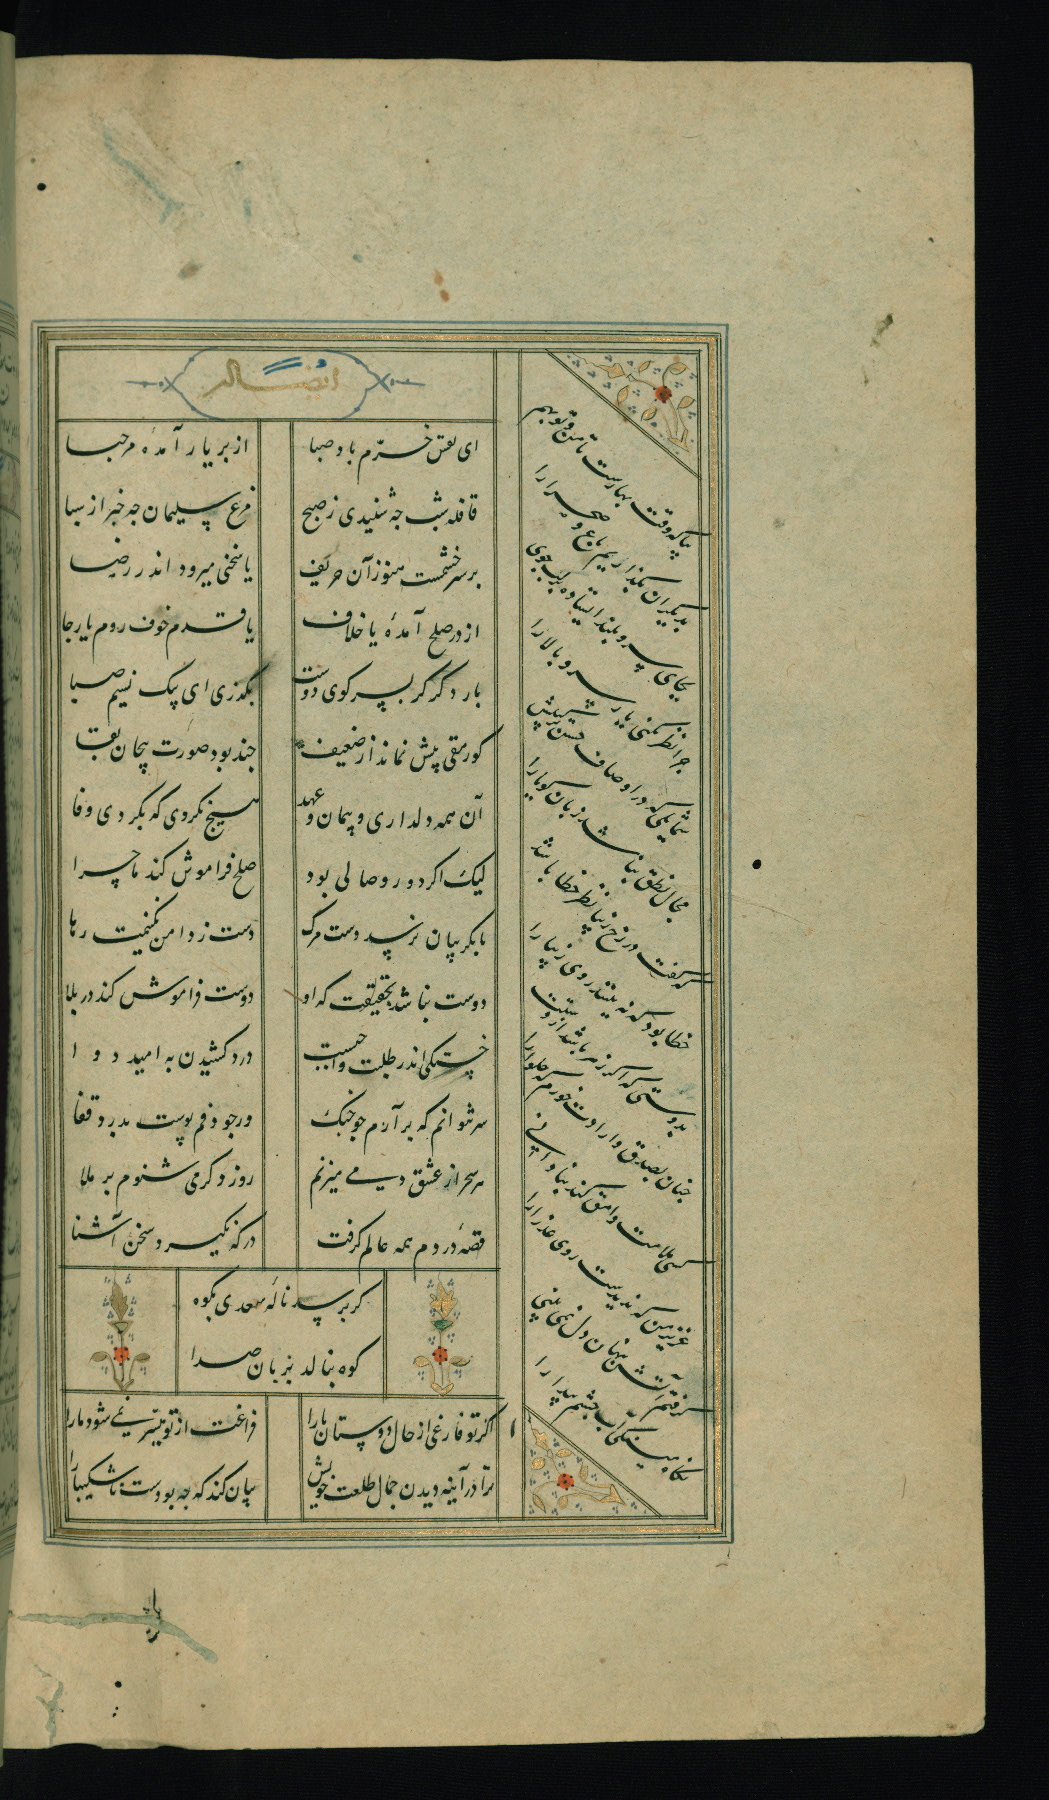 ایضا له
ای نفس خرّم باد صبا
از بر یار آمدهٔ مرحبا
قافله شب چه شنیدی ز صبح
مرغ سلیمان چه خبر از سبا
بر سر خشمست هنوز آن حریف
یا سخنی میرود اندر رضا
از در صلح آمدهٔ یا خلاف
با قدم خوف روم یا رجا
بار دگر گر بسر کوی دوست
بگذری ای پیک نسیم صبا
گو رمقی بیش نماند از ضعیف
چند بود صورت بیجان بقا
آن همه دلداری و پیمان و عهد
هیچ نکردی که بکردی وفا
لیک اگر دور وصالی بود
صلح فراموش کند ماجرا
تا بگریبان نرسد دست مرگ
دست ز دامن نکنیمت رها
دوست نباشد بحقیقت که او
دوست فراموش کند در بلا
خستگی اندر طلبت راحتست
درد کشیدن به امید دوا
سر نتوانم که برآرم چو چنگ
ور چو دفم پوست بدرد قفا
هر سحر از عشق دمی میزنم
روز دگر می شنوم بر ملا
قصهٔ دردم همه عالم گرفت
در که نگیرد سخن آشنا
گر برسد نالهٔ سعدی بکوه
کوه بنالد بزبان صدا
اگر تو فارغی از حال دوستان یارا
فراغت از تو میسّر نمی شود ما را
ترا در آینه دیدن جمال طلعت خویش
بیان کند که چه بودست ناشکیبا را
بیا که وقت بهارست تا من و تو بهم
بدیگران بگذاریم باغ و صحرا را
بجای سرو بلند ایستاده بر لب جوی
چرا نظر نکنی یار سرو بالا را
شمایلی که در اوصاف حسن ترکیبش
مجال نطق نباشد زبان گویا را
که گفت در رخ زیبا نظر خطا باشد
خطا بود که نبینند روی زیبا را
بدوستی که اگر زهر باشد از دستت
چنان بصدق و ارادت خورم که حلوا را
کسی ملامت وامق کند بنادانی
عزیز من که ندیدست روی عذرا را
گرفتم آتش پنهان دل نمی بینی
نگاه می نکنی آب چشم پیدا را